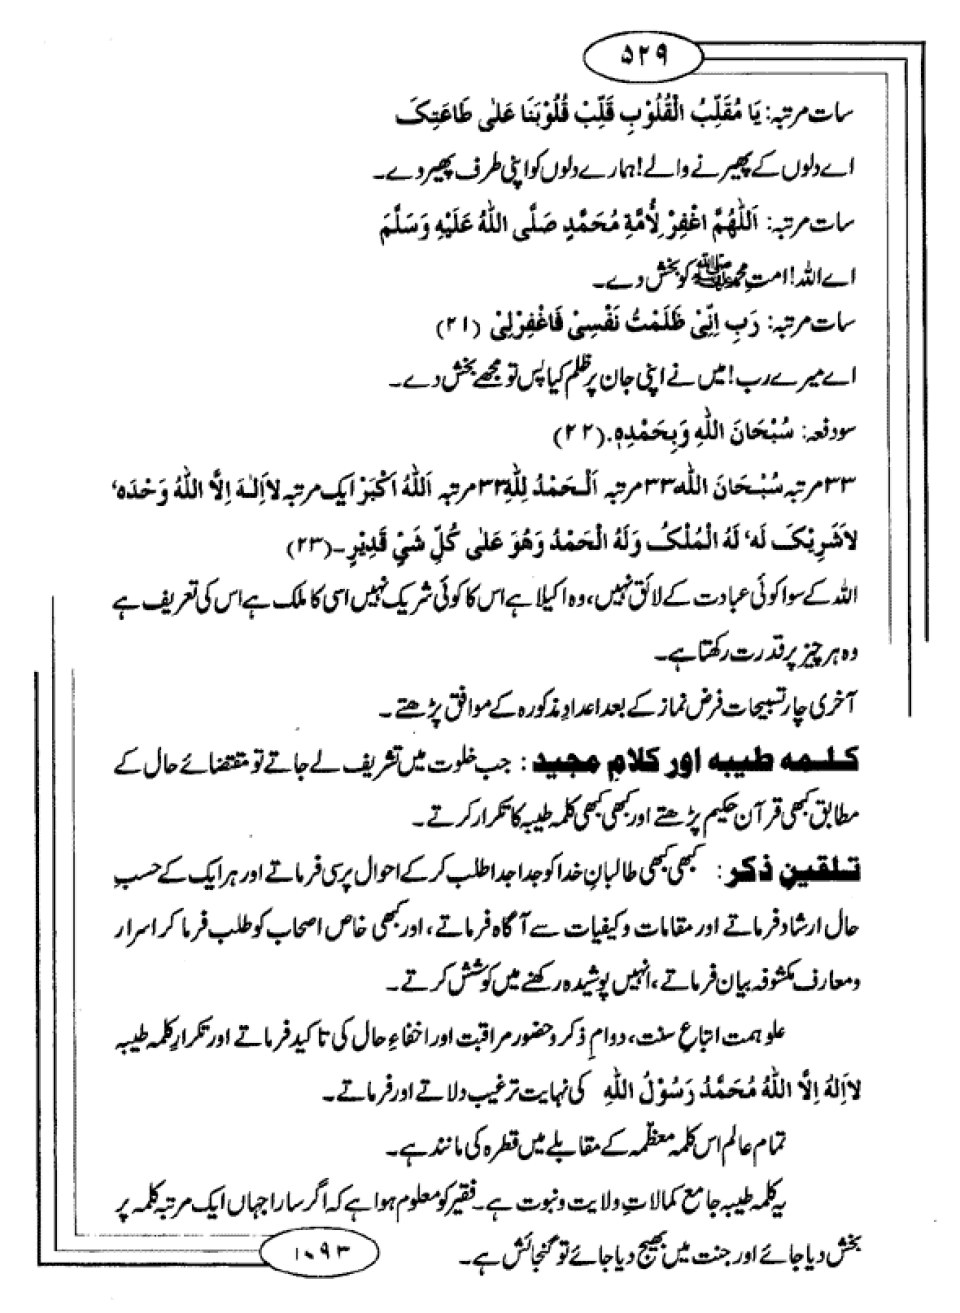 ۵۲۹
سات مرتبہ: یَا مُقَلِّبُ الْقُلُوْبِ قَلِّبْ قُلُوْبَنَا عَلٰی طَاعَتِکَ
اے دلوں کے پھیرنے والے! ہمارے دلوں کو اپنی طرف پھیر دے۔
سات مرتبہ: اَللّٰهُمَّ اغْفِرْ لِاُمَّةِ مُحَمَّدٍ صَلَّی اللّٰهُ عَلَیْهِ وَسَلَّمَ
اے اللہ! امتِ محمد ﷺ کو بخش دے۔
سات مرتبہ: رَبِ اِنِّیْ ظَلَمْتُ نَفْسِیْ فَاغْفِرْلِیْ (۲۱)
اے میرے رب! میں نے اپنی جان پر ظلم کیا پس تو مجھے بخش دے۔
سو دفعہ: سُبْحَانَ اللّٰهِ وَبِحَمْدِهٖ۔ (۲۲)
۳۳ مرتبہ سُبْحَانَ اللّٰه ۳۳ مرتبہ اَلْحَمْدُ لِلّٰهِ ۳۳ مرتبہ اَللّٰهُ اَکْبَرْ ایک مرتبہ لَااِلٰهَ اِلَّا اللّٰهُ وَحْدَه‘
لَاشَرِیْکَ لَه‘ لَهُ الْمُلْکُ وَلَهُ الْحَمْدُ وَهُوَ عَلٰی کُلِّ شَیْءٍ قَدِیْرٍ ۔ (۲۳)
اللہ کے سوا کوئی عبادت کے لائق نہیں، وہ اکیلا ہے اس کا کوئی شریک نہیں اسی کا ملک ہے اس کی تعریف ہے
وہ ہر چیز پر قدرت رکھتا ہے۔
آخری چار تسبیحات فرض نماز کے بعد اعدادِ مذکورہ کے موافق پڑھتے۔
کلمہ طیبہ اور کلامِ مجید: جب خلوت میں تشریف لے جاتے تو مقتضائے حال کے
مطابق کبھی قرآن حکیم پڑھتے اور کبھی کبھی کلمہ طیبہ کا تکرار کرتے۔
تلقینِ ذکر: کبھی کبھی طالبانِ خدا کو جدا جدا طلب کر کے احوال پرسی فرماتے اور ہر ایک کے حسبِ
حال ارشاد فرماتے اور مقامات و کیفیات سے آگاہ فرماتے، اور کبھی خاص اصحاب کو طلب فرما کر اسرار
و معارف مکشوفہ بیان فرماتے، انہیں پوشیدہ رکھنے میں کوشش کرتے۔
علو ہمت اتباعِ سنت، دوامِ ذکر و حضور مراقبت اور اخفاءِ حال کی تاکید فرماتے اور تکرارِ کلمہ طیبہ
لَااِلٰهُ اِلَّا اللّٰهُ مُحَمَّدُ رَسُوْلُ اللّٰهِ کی نہایت ترغیب دلاتے اور فرماتے۔
تمام عالم اس کلمہ معظّمہ کے مقابلے میں قطرہ کی مانند ہے۔
یہ کلمہ طیبہ جامع کمالاتِ ولایت و نبوت ہے۔ فقیر کو معلوم ہوا ہے کہ اگر سارا جہاں ایک مرتبہ کلمہ پر
بخش دیا جائے اور جنت میں بھیج دیا جائے تو گنجائش ہے۔
۱۰۹۳